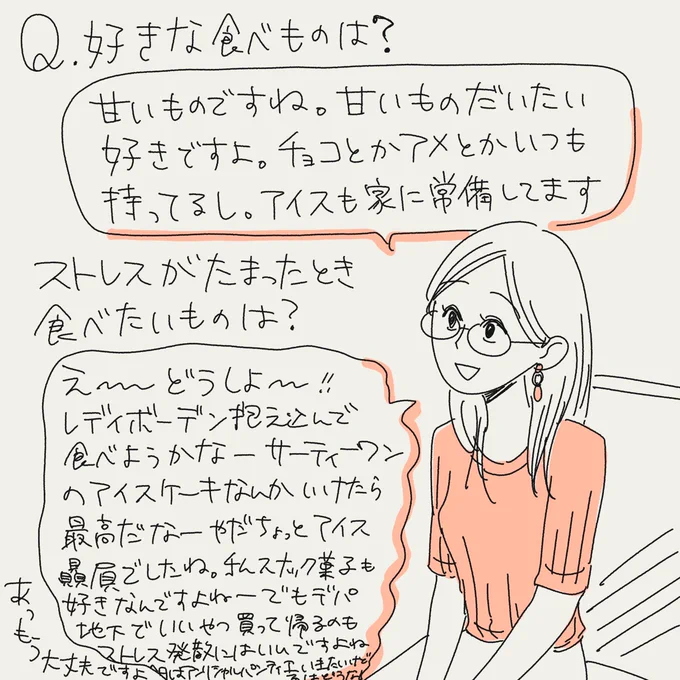 Q.好きな食べものは？
甘いものですね。甘いものだいたい
好きですよ。チョコとかアメとかいつも
持ってるし。アイスも家に常備してます
ストレスがたまったとき
食べたいものは？
え〜〜どうしよ〜!!
レディボーデン抱え込んで
食べようかなーサーティーワン
のアイスケーキなんかいけたら
最高だなーやだちょっとアイス
贔屓でしたね。でもスナック菓子も
好きなんですよねーでもデパ
地下でいいやつ買って帰るのも
ストレス発散にはいいんですよね
あっもう
大丈夫ですよ